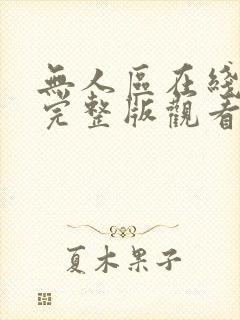 無人區在綫
完整版觀看
夏木果子